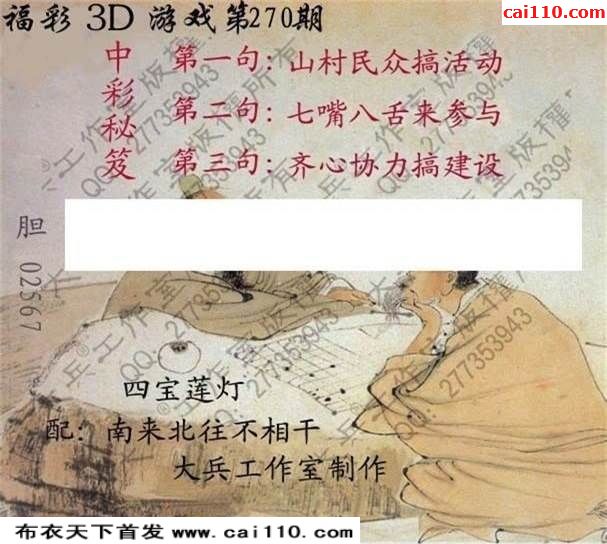 福彩 3D 游戏第270期
www.
cai110.com
中彩秘笈
第一句：山村民众搞活动
第二句：七嘴八舌来参与
第三句：齐心协力搞建设
胆 02567
四宝莲灯
配：南来北往不相干
大兵工作室制作
大兵®工作室版權所有
QQ:277353943
布衣天下首发 www.cai110.com